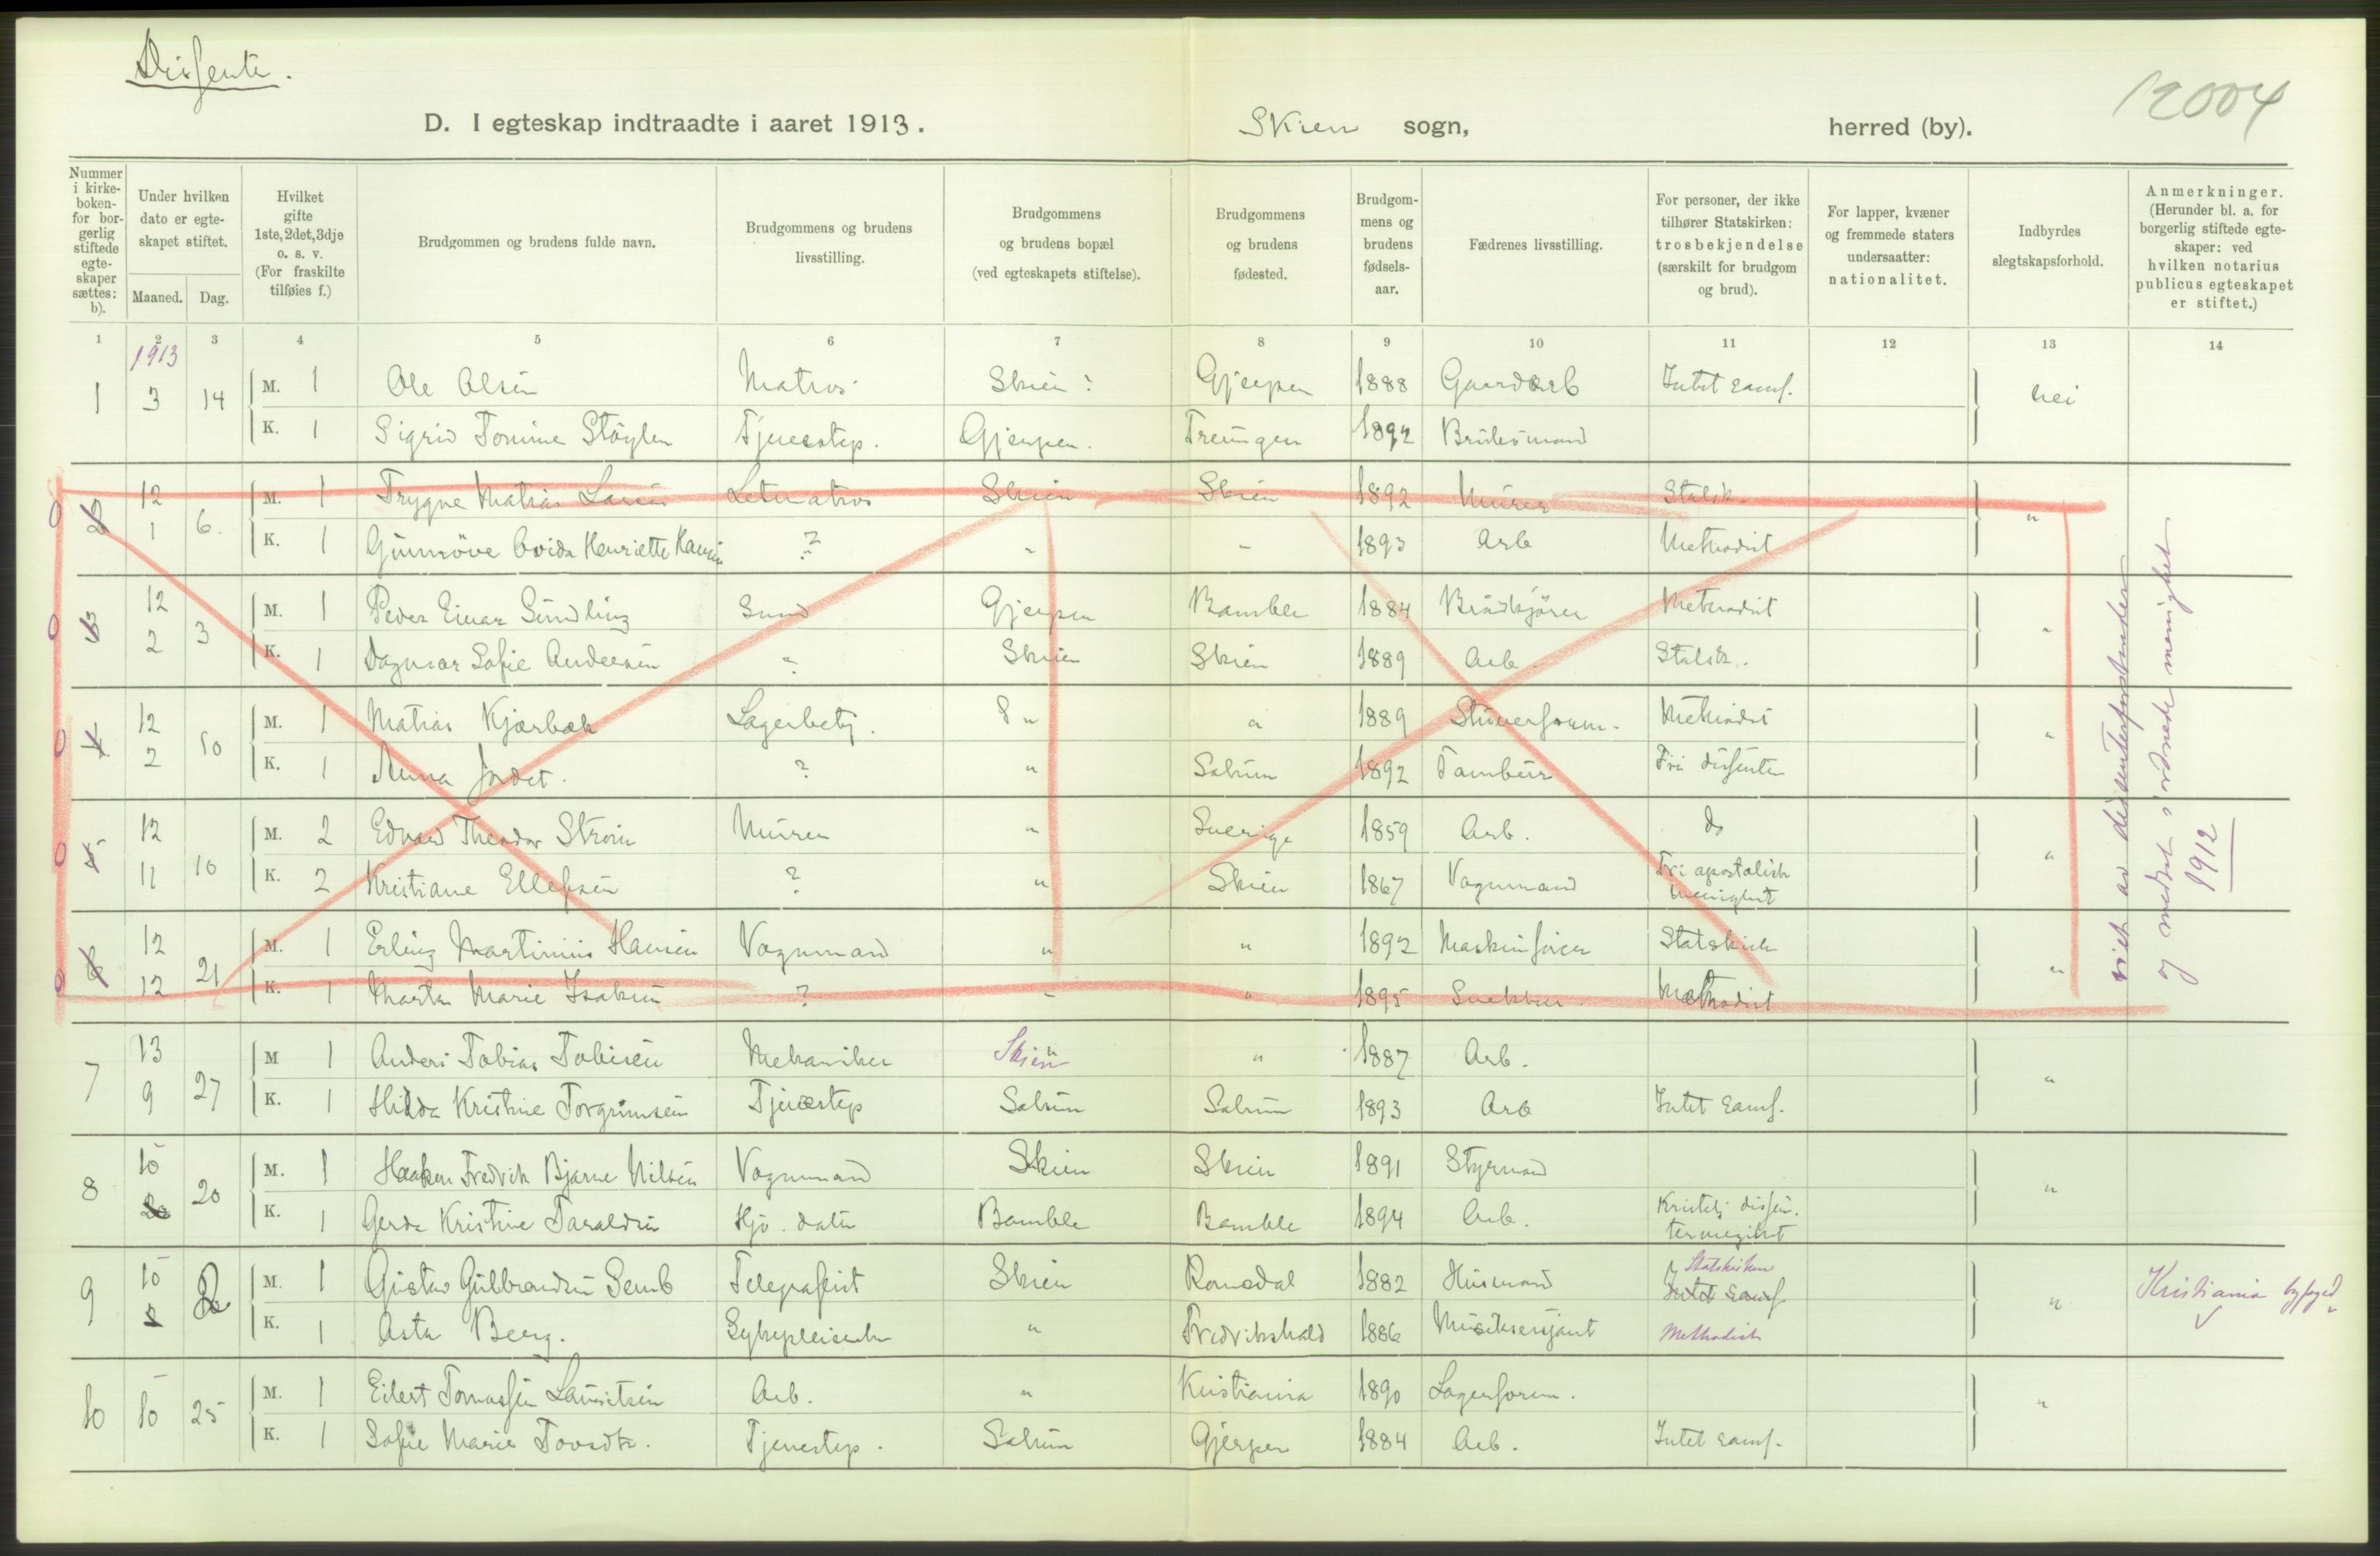 Dissente.
12004
D. I egteskap indtraadte i aaret 1913. Skien sogn, herred (by).
Nummer i kirkeboken- for borgerlig stiftede egteskaper sættes: b).
Under hvilken dato er egteskapet stiftet.
Maaned. Dag.
Hvilket gifte 1ste, 2det, 3dje o. s. v. (For fraskilte tilføies f.)
Brudgommen og brudens fulde navn.
Brudgommens og brudens livsstilling.
Brudgommens og brudens bopæl (ved egteskapets stiftelse).
Brudgommens og brudens fødested.
Brudgommens og brudens fødselsaar.
Fædrenes livsstilling.
For personer, der ikke tilhører Statskirken: trosbekjendelse (særskilt for brudgom og brud).
For lapper, kvæner og fremmede staters undersaatter: nationalitet.
Indbyrdes slegtskapsforhold.
Anmerkninger. (Herunder bl. a. for borgerlig stiftede egteskaper: ved hvilken notarius publicus egteskapet er stiftet.)
1 2 3 4 5 6 7 8 9 10 11 12 13 14
1913
1 3 14 M. 1 Ole Olsen Matros Skien Gjerpen 1888 Gaardarb Intet samf. nei
K. 1 Sigrid Tomine Støylen Tjenestep. Gjerpen. Treungen 1892 Bruksmand
2 12 1 6. M. 1 Trygve Matias Larsen Letmatros Skien Skien 1892 Murer Statsk. "
K. 1 Gunnøve Ovida Henriette Hansen ? " " 1893 Arb Methodist
3 12 2 3 M. 1 Peder Einar Sundling Smed Gjerpen Bamble 1884 Brødkjører Methodist "
K. 1 Dagmar Sofie Andersen " Skien Skien 1889 Arb. Statsk.
4 12 2 10 M. 1 Matias Kjærbæk Lagerbetj. " " 1889 Stuverform. Methodist "
K. 1 Anna Jordet. ? " Solum 1892 Tambur Fri dissenter
5 12 11 10 M. 2 Edvard Theodor Strøm Murer " Sverige 1859 Arb. do "
K. 2 Kristiane Ellefsen ? " Skien 1867 Vognmand Fri apostolisk menighet
6 12 12 21 M. 1 Erling Martinius Hansen Vognmand " " 1892 Maskinfører Statskirk "
K. 1 Marta Marie Isaksen ? " " 1895 Snekker. Methodist
viet av dissenterforstander og medtat i ordnede menighet 1912
7 13 9 27 M 1 Anders Tobias Tobisen Mekaniker Skien " 1887 Arb. "
K. 1 Hilda Kristine Torgrimsen Tjenestep Solum Solum 1893 Arb Intet samf.
8 10 20 M. 1 Haakon Fredrik Bjarne Nilsen Vognmand Skien Skien 1891 Styrmand "
K. 1 Gerda Kristine Taraldsen Hj. datter Bamble Bamble 1894 Arb. Kristelig dissentermenighet
9 10 2 M. 1 Gustav Gulbrandsen Semb Telegrafist Skien Romsdal 1882 Husmand Statskirken Intet samf " Kristiania byfoged
K. 1 Asta Berg. Sykepleierske " Fredrikshald 1886 Musiksersjant Methodist
10 10 25 M. 1 Eilert Tomassen Lauritsen Arb. " Kristiania 1890 Lagerform. "
K. 1 Sofie Marie Tovsdt. Tjenestep. Solum Gjerpen 1884 Arb. Intet samf.